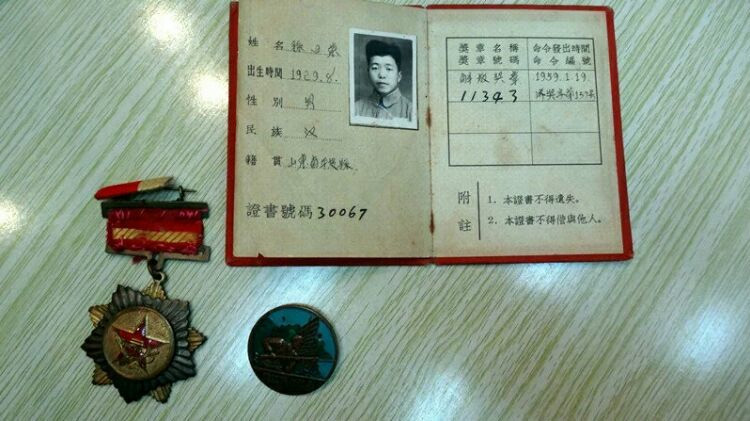 姓名 徐
出生時間 1929.8.
性別 男
民族 汉
籍貫 山東省
證書號碼 30067
獎章名稱 命令發出時間
獎章號碼 命令編號
解放奖章 1959.1.19
11343
附註
1. 本證書不得遺失。
2. 本證書不得借與他人。